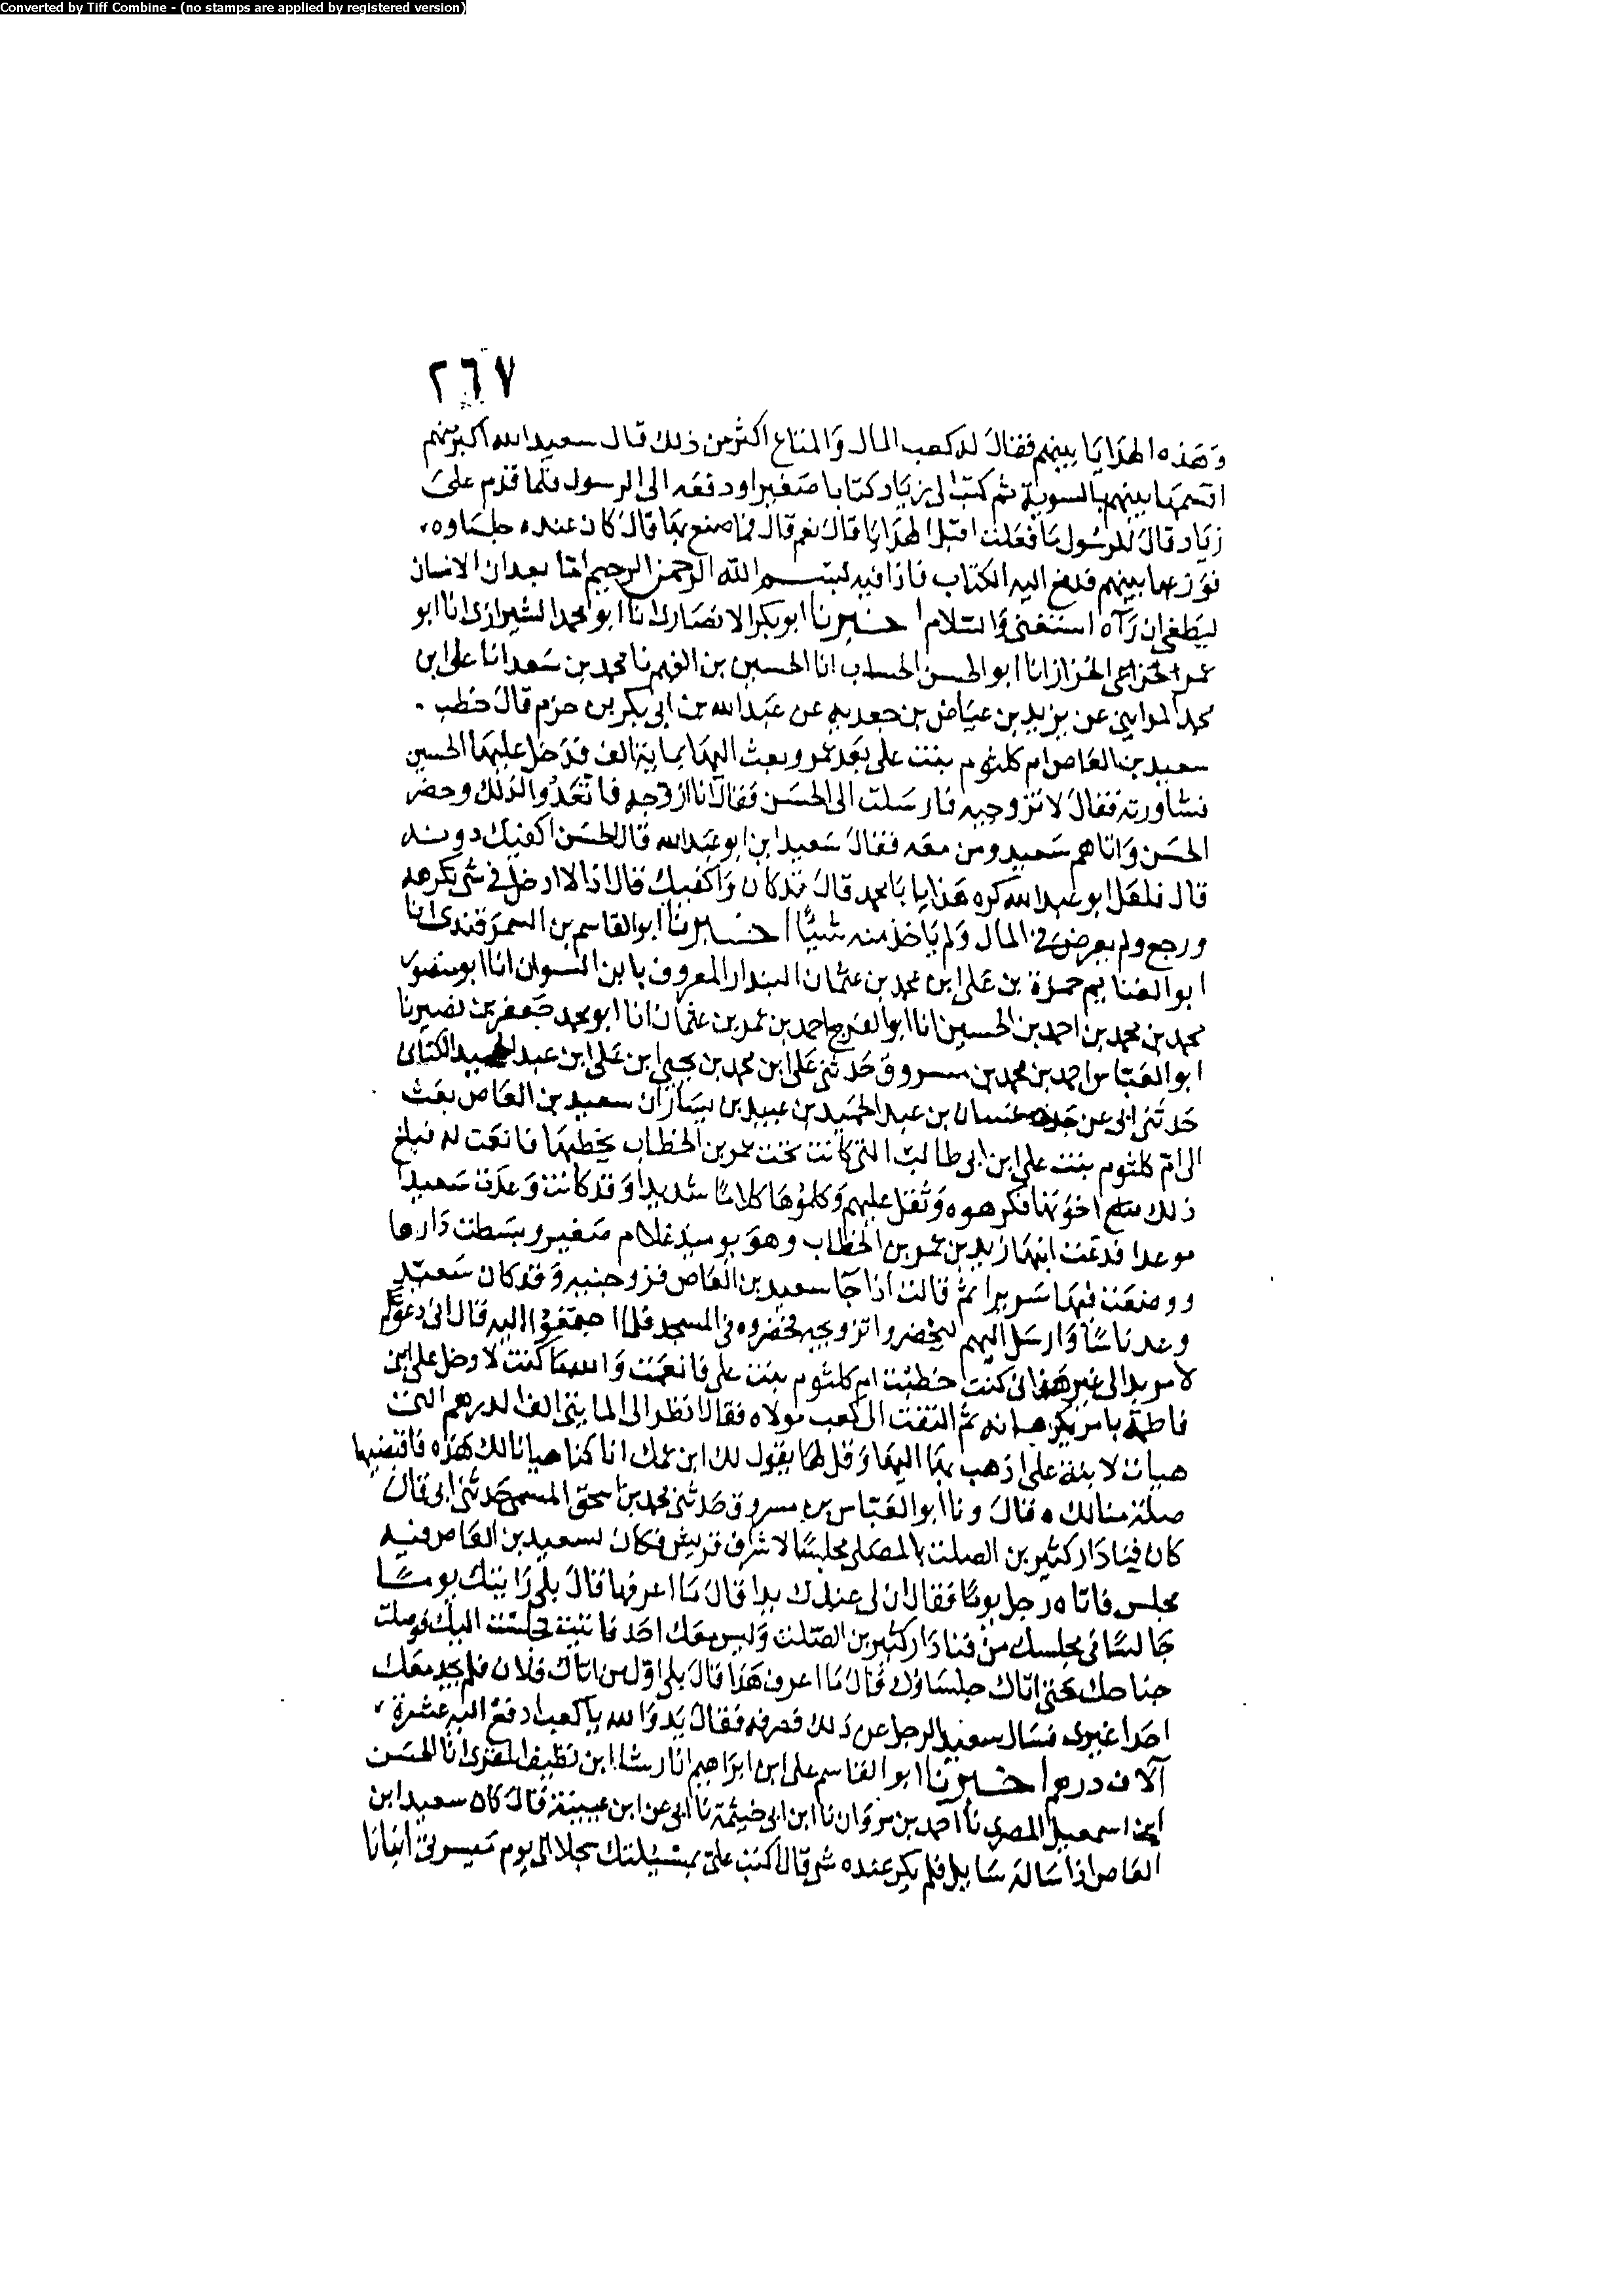 Converted by Tiff Combine - (no stamps are applied by registered version)
٢٦٧
وهذه الهدايا بينهم فقال له كعب المال والمتاع اكثر من ذلك قال سعيد الله اكبر منهم
اقسمها بينهم بالسوية ثم كتب الى زياد كتابا صغيرا ودفعه الى الرسول فلما قدم على
زياد قال للرسول ما فعلت اقبل الهدايا قال نعم قال فما صنع بها قال كان عنده جلساوه
فوزعها بينهم فدفع اليه الكتاب فاذا فيه بسم الله الرحمن الرحيم اما بعد ان الانسان
ليطغى ان رآه استغنى والسلام اخبرنا ابو بكر الانصارى انا ابو محمد الشيرازى انا ابو
عمر الخزاعى الخزاز انا ابو الحسن الحساب انا الحسين بن الفهم نا محمد بن سعد انا على ابن
محمد المدايني عن يزيد بن عياض بن جعدبه عن عبد الله بن ابى بكر بن حزم قال خطب
سعيد بن العاص ام كلثوم بنت على بعد عمر وبعث اليها بماية الف فدخل عليها الحسين
فشاورته فقال لا تزوجيه فارسلت الى الحسن فقال انا ازوجه فاتعدوا لذلك وحضر
الحسن واتاهم سعيد ومن معه فقال سعيد اين ابو عبد الله قال الحسن اكفيك دونه
قال فلعل ابو عبد الله كره هذا يا با محمد قال قد كان واكفيك قال اذا لا ادخل في شى يكرهه
ورجع ولم يعرض في المال ولم ياخذ منه شيئا اخبرنا ابو القاسم بن السمرقندى انا
ابو الغنايم حمزة بن على ابن محمد بن عثمان البندار المعروف بابن السوان انا ابو منصور
محمد بن محمد بن احمد بن الحسين انا ابو الفرج احمد بن عمر بن عثمان انا ابو محمد جعفر بن نصير نا
ابو العباس احمد بن محمد بن مسروق حدثنى على ابن محمد بن يحيى ابن على ابن عبد الحميد الكنانى
حدثنى ابى عن جده غسان بن عبد الحميد بن عبيد بن يسار ان سعيد بن العاص بعث
الى ام كلثوم بنت على ابن ابى طالب التى كانت تحت عمر بن الخطاب يخطبها فانعمت له فبلغ
ذلك اخوتها فكرهوه وثقل عليهم وكلموها كلاما شديدا وقد كانت وعدت سعيدا
موعدا فدعت ابنها زيد بن عمر بن الخطاب وهو يوميذ غلام صغير وبسطت دارها
ووضعت فيها سريرا ثم قالت اذا جا سعيد بن العاص فزوجنيه وقد كان سعيد
وعد ناسا وارسل اليهم ليحضروا تزويجه فحضروه في المسجد فلما اجتمعوا اليه قال انى دعوتكم
لامر بدا لى غير هذا انى كنت خطبت ام كلثوم بنت على فانعمت والله ما كنت لادخل على ابنى
فاطمة بامر يكرهانه ثم التفت الى كعب مولاه فقال انظر الى المايتى الف الدرهم التى
هيات لابنة على اذهب بها اليها وقل لها يقول لك ابن عمك انا كنا هيانا لك هذه فاقبضيها
صلة منا لك ه قال ونا ابو العباس بن مسروق حدثنى محمد بن اسحق المسمعى حدثنى ابى قال
كان فينا دار كثير بن الصلت بالمصلى مجلسا لاشراف قريش فكان لسعيد بن العاص فيه
مجلس فاتاه رجل يوما فقال ان لى عندك يدا قال ما اعرفها قال بلى رايتك يوما
جالسا في مجلسك من فنا دار كثير بن الصلت وليس معك احد فاتيت فجلست اليك فوصلت
جناحك حتى اتاك جلساؤك قال ما اعرف هذا قال بلى اول من اتاك فلان فلم يجد معك
احدا غيرى فسال سعيد الرجل عن ذلك فعرفه فقال يد والله يا كعب ادفع اليه عشرة
آلاف درهم اخبرنا ابو القاسم على ابن ابراهيم انا رشا ابن نظيف المقرى انا الحسن
ابن اسمعيل المصرى نا احمد بن مروان نا ابن ابى خيثمة نا ابى عن ابن عيينة قال كان سعيد ابن
العاص اذا ساله سايل فلم يكن عنده شى قال اكتب على بمسئلتك سجلا الى يوم ميسرتى انبانا